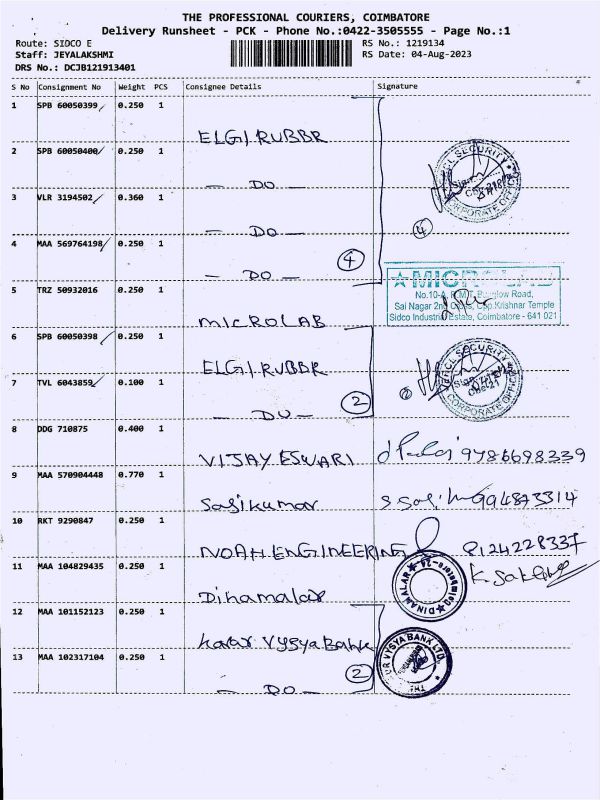 THE PROFESSIONAL COURIERS, COIMBATORE
Delivery Runsheet - PCK - Phone No.:0422-3505555 - Page No.:1
Route: SIDCO E RS No.: 1219134
Staff: JEYALAKSHMI RS Date: 04-Aug-2023
DRS No.: DCJB121913401
S No Consignment No Weight PCS Consignee Details Signature
1 SPB 60050399 0.250 1
ELGI RUBBR
2 SPB 60050400 0.250 1
- DO -
3 VLR 3194502 0.360 1
- DO -
4 MAA 569764198 0.250 1
- DO - 4
SECURITY
CORPORATE OFFICE
4
5 TRZ 50932016 0.250 1
MICROLAB
MICROLAB
No.10-A,
Sai Nagar 2nd Cross, Opp.Krishnar Temple
Sidco Industrial Estate, Coimbatore - 641 021
6 SPB 60050398 0.250 1
ELGI RUBBR
7 TVL 6043859 0.100 1
- DO - 2
2
SECURITY
CORPORATE OFFICE
8 DDG 710875 0.400 1
VIJAY ESWARI 9786698339
9 MAA 570904448 0.770 1
Sasikumar 994873314
10 RKT 9290847 0.250 1
NOAH ENGINEERING 8124228337
11 MAA 104829435 0.250 1
Dinamalar
DINAMALAR
12 MAA 101152123 0.250 1
karur Vysya Bank
13 MAA 102317104 0.250 1
- DO - 2
THE KARUR VYSYA BANK LTD.